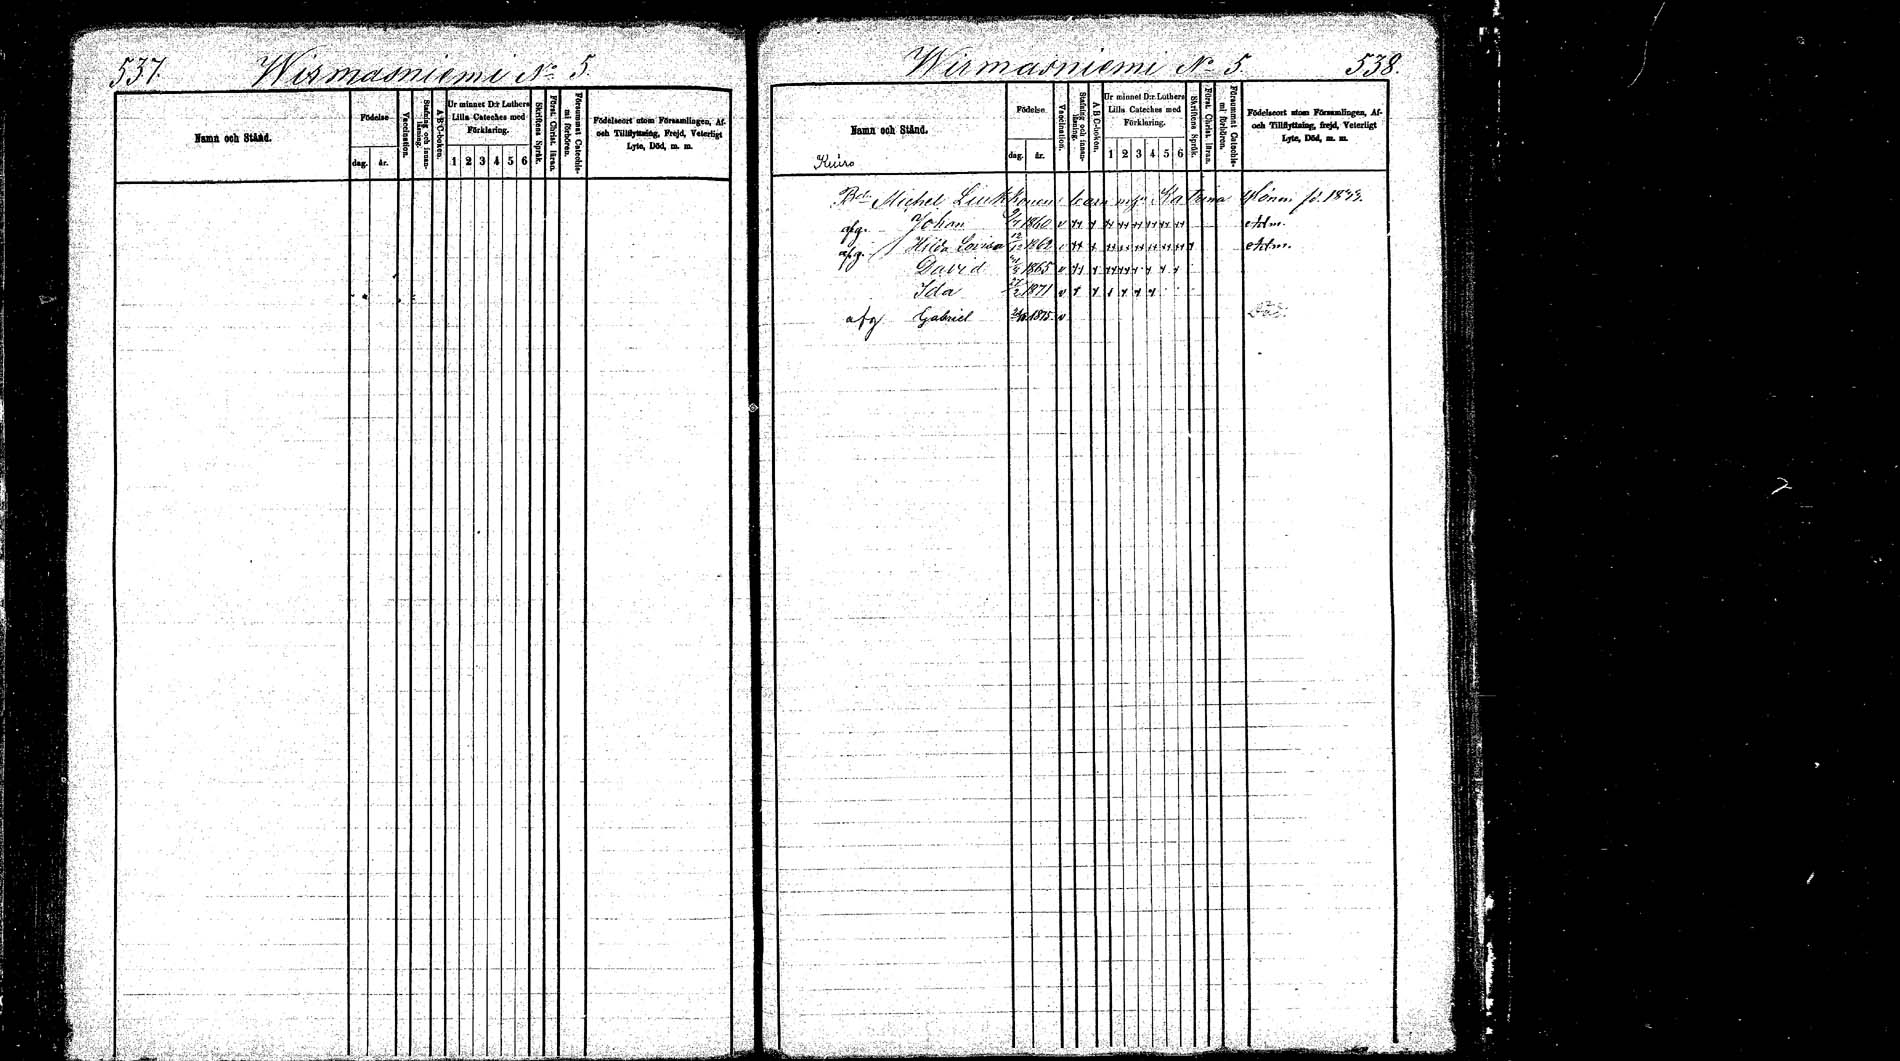 537. Wirmasniemi No 5.
Namn och Stånd.
Födelse
dag. år.
Vaccination.
Stafning och innan-läsning.
A B C-boken.
Ur minnet D:r Luthers
Lilla Cateches med
Förklaring.
1 2 3 4 5 6
Skriftens Språk.
Först. Christ. läran.
Försummat Catechis-mi förhören.
Födelseort utom Församlingen, Af-
och Tillflyttning, Frejd, Veterligt
Lyte, Död, m. m.
Wirmasniemi No 5 538.
Namn och Stånd.
Födelse
dag. år.
Vaccination.
Stafning och innan-läsning.
A B C-boken.
Ur minnet D:r Luthers
Lilla Cateches med
Förklaring.
1 2 3 4 5 6
Skriftens Språk.
Först. Christ. läran.
Försummat Catechis-mi förhören.
Födelseort utom Församlingen, Af-
och Tillflyttning, frejd, Veterligt
Lyte, Död, m. m.
Michel barn Katrina fö. 1833.
afg. Johan 1860 v
afg. Hilda Lovisa 1862 v
David 1865 v
Ida 1871 v
afg Gabriel 1875 v